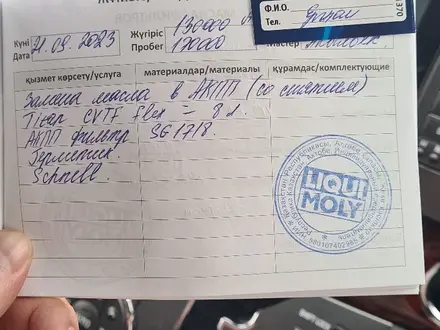 Күні
Дата 21.09.2023
Жүгіріс 130000
Пробег 170000
Ф.И.О.
Тел.
Мастер
қызмет көрсету/услуга
материалдар/материалы
құрамдас/комплектующие
Замена масла в АКПП (со снятием)
Titan CVTF Flex = 8 л.
АКПП фильтр SG 1718.
Герметик
Schnell
LIQUI
MOLY